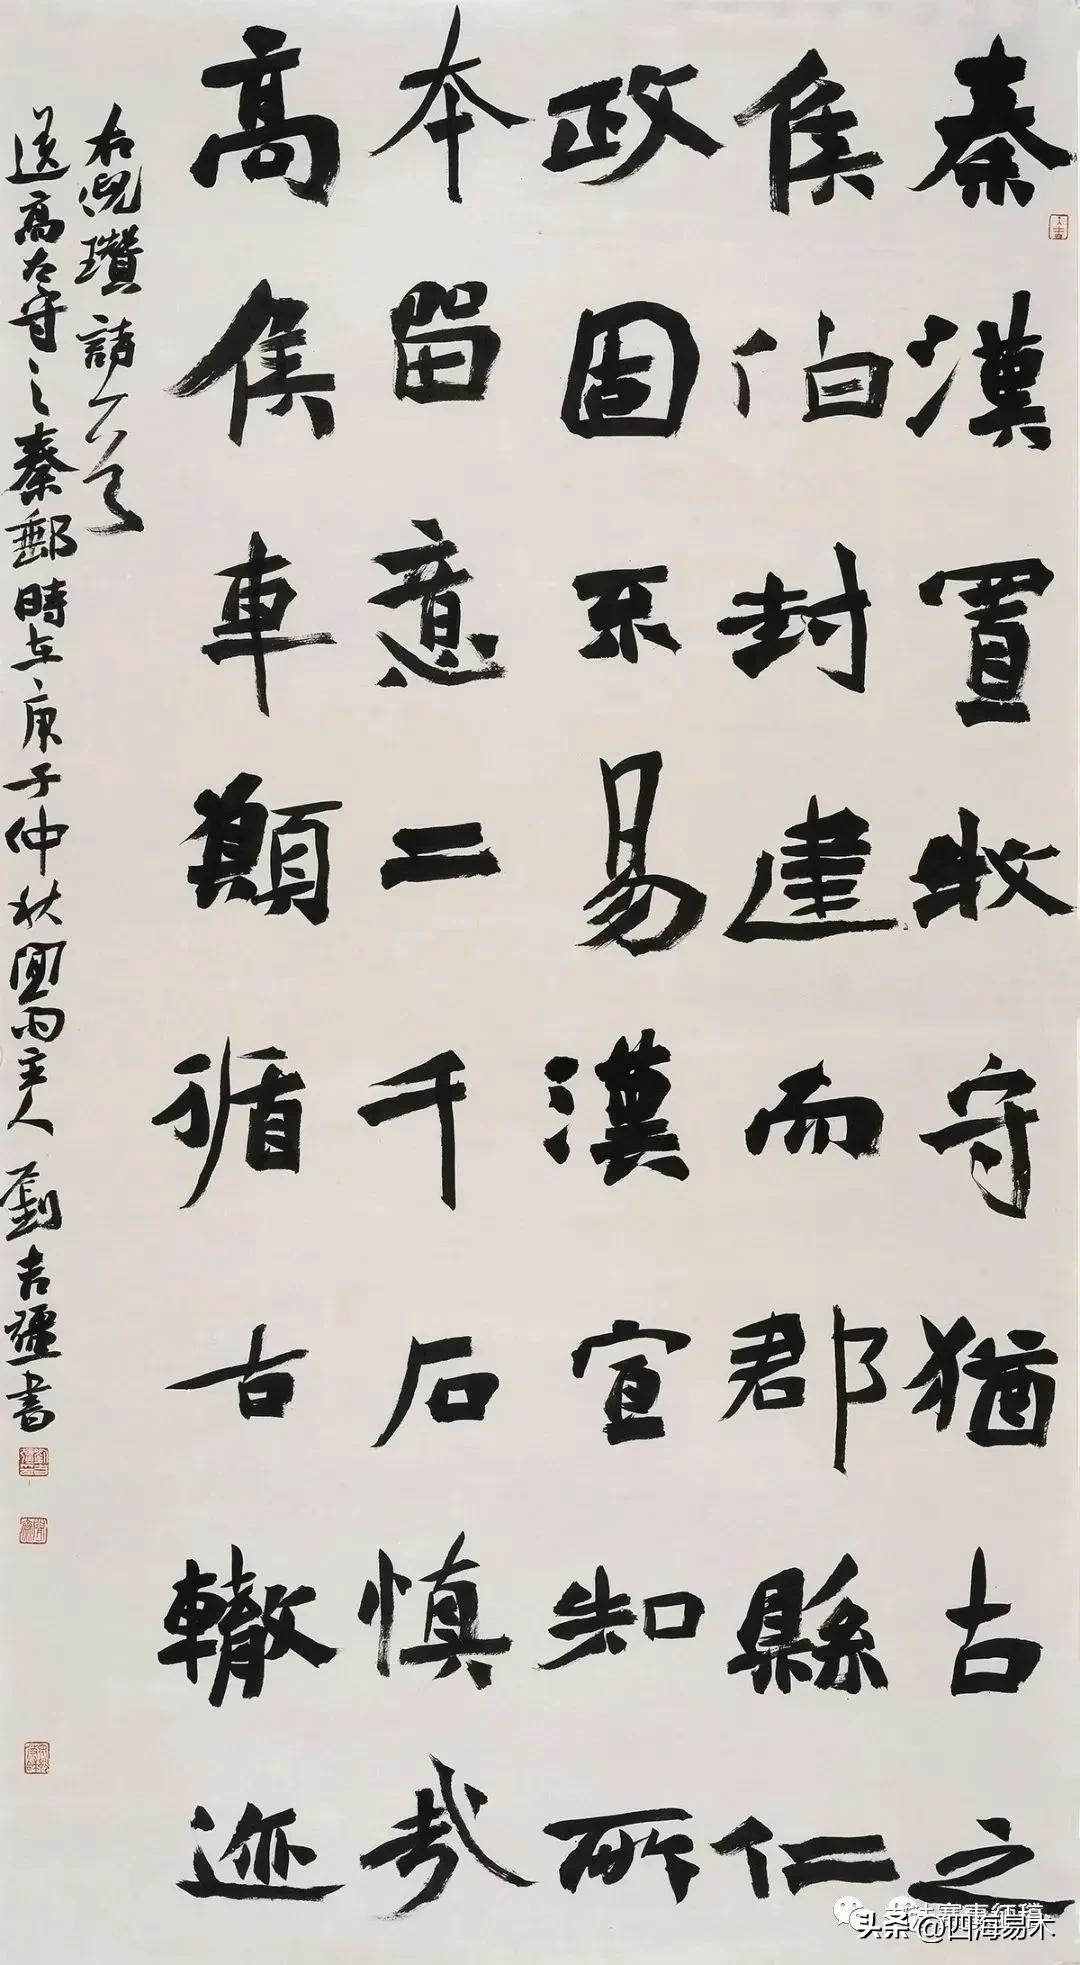 秦漢置牧守猶古之
侯伯封建而郡縣仁
政固不易漢宣知所
本留意二千石慎哉
高侯車顛循古轍迹
右倪瓚詩一首
送高太守之秦郵時在庚子仲秋聞雨主人劉吉疆書
头条@四海易木
书法赛事征稿